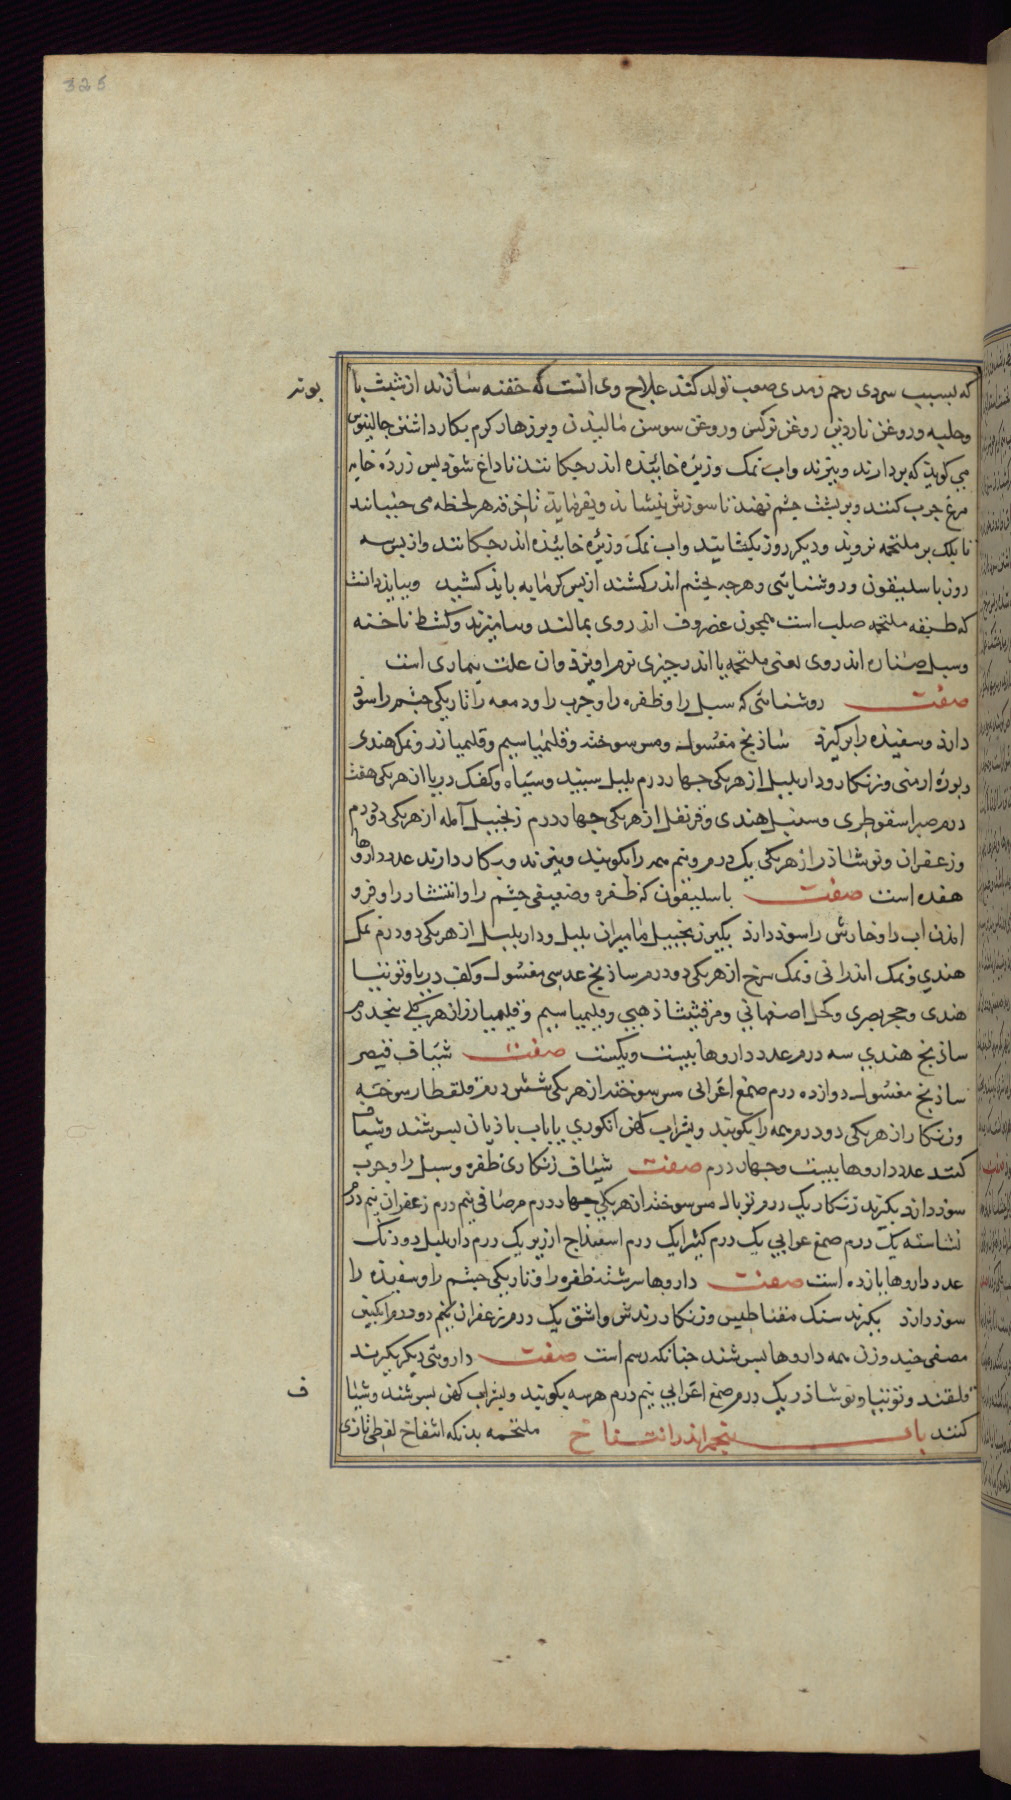 325
که بسبب سردی رحم زمدی صعب تولد کند علاج وی انست که حقنه سازند از شبت با
بوند
وحلبه وروغن ناردین روغن نرکس وروغن سوسن مالیدن وبرزهار کرم بکار داشتن جالینوس
می کوید که بردارند وببرند واب نمک وزیره خائیده اندر چکانند تا داغ شود پس زرده خایه
مرغ چرب کنند وبر پشت چشم نهند تا سوزش بنشاند هر لحظه می جنبانند
تا پلک بر ملتحمه نروید ودیکر روز بکشایند واب نمک وزیره خائیده اندر چکانند واز پس سه
روز باسلیقون وروشنایی وهرچه بچشم اندر کشند از پس کرمابه باید کشید وبباید دانست
که طبقه ملتحمه صلب است همچون غضروف اندر وی بمالند وکشط ناخنه
وسبل صناره اندر وی یعنی ملتحمه یا اندر چیزی نرم اویزد وان علت بیماری است
صفت روشنایی که سبل را وظفره را وجرب را ودمعه را تاریکی چشم را سود
دارد وسفیده را برکیرد شاذنج مغسول ومس سوخته وقلیمیا سیم وقلیمیا زر ونمک هندی
وبوره ارمنی وزنکار ودار بلبل از هر یکی چهار درم بلبل سبید وسیاه وکفک دریا از هر یکی هفت
درم صبر اسقوطری وسنبل هندی وقرنفل از هر یکی چهار درم زنجبیل آمله از هر یکی دو درم
وزعفران ونوشاذر از هر یکی یک درم ونیم همه را بکوبند وببزند وبه کار دارند عدد داروها
هفده است صفت باسلیقون که ظفره وضعیفی چشم را وانتشار را وفرو
امدن اب را وخارش را سود دارد بکیر زنجبیل مامیران بلبل ودار بلبل از هر یکی دو درم نمک
هندی ونمک اندرانی ونمک سرخ از هر یکی دو درم ساذنج عدسی مغسول وکف دریا وتوتیا
هندی وحجر بصری وکحل اصفهانی ومرقشیشا ذهبی وقلیمیا سیم وقلیمیا زر از هر یکی پنج درم
ساذنج هندی سه درم عدد داروها بیست ویکست صفت شیاف قیصر
ساذنج مغسول دوازده درم صمغ اعرابی مس سوخته از هر یکی شش درم قلقطار سوخته
وزنکار از هر یکی دو درم همه را بکوبند وبشراب کهن انکوری یا باب باذیان بسرشند وشیاف
کنند عدد داروها بیست وچهار درم صفت شیاف زنکاری ظفره وسبل را وجرب
سود دارد بکیرند زنکار یک درم توبال مس سوخته از هر یکی چهار درم مرصافی نیم درم زعفران نیم درم
نشاسته یک درم صمغ عرابی یک درم کثیرا یک درم اسفیداج ارزیز یک درم دار بلبل دو دنک
عدد داروها یازده است صفت داروها سرشته ظفره را وتاریکی چشم را وسفیده را
سود دارد بکیرند سنک مغناطیس وزنکار واشق یک درم زعفران نیم دو درم انکبین
مصفی چند وزن همه داروها بسرشند چنانکه رسم است صفت داروئی دیکر بکیرند
قلقند وتوتیا ونوشاذر یک درم صمغ اعرابی نیم درم هر سه بکوبند وبشراب کهن بسرشند وشیا
ف
کنند باب پنجم اندر انتفاخ ملتحمه بدانکه انتفاخ لفظی تازی